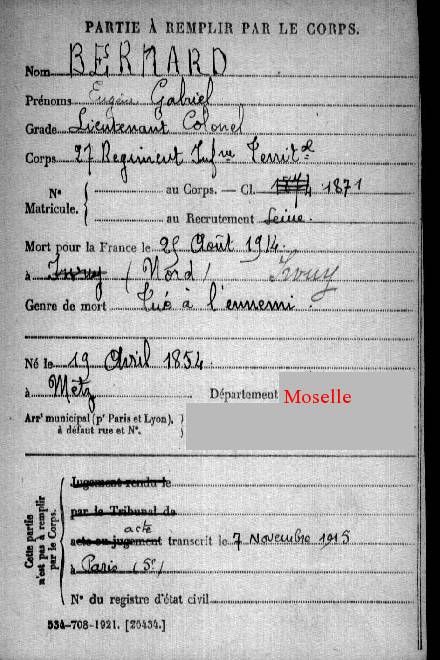 PARTIE À REMPLIR PAR LE CORPS.
Nom BERNARD
Prénoms Eugène Gabriel
Grade Lieutenant Colonel
Corps 27 Regiment Infrie Territale
N° Matricule. { au Corps. — Cl. 1871
au Recrutement Seine.
Mort pour la France le 25 Août 1914.
à Iwuy (Nord) Iwuy
Genre de mort Tué à l'ennemi.
Né le 19 Avril 1854
à Metz Département Moselle
Arrt municipal (pr Paris et Lyon),
à défaut rue et N°.
Cette partie n'est pas à remplir par le Corps.
Jugement rendu le
par le Tribunal de
acte
acte ou jugement transcrit le 7 Novembre 1915
à Paris (5e)
N° du registre d'état civil
534-708-1921. [26434.]